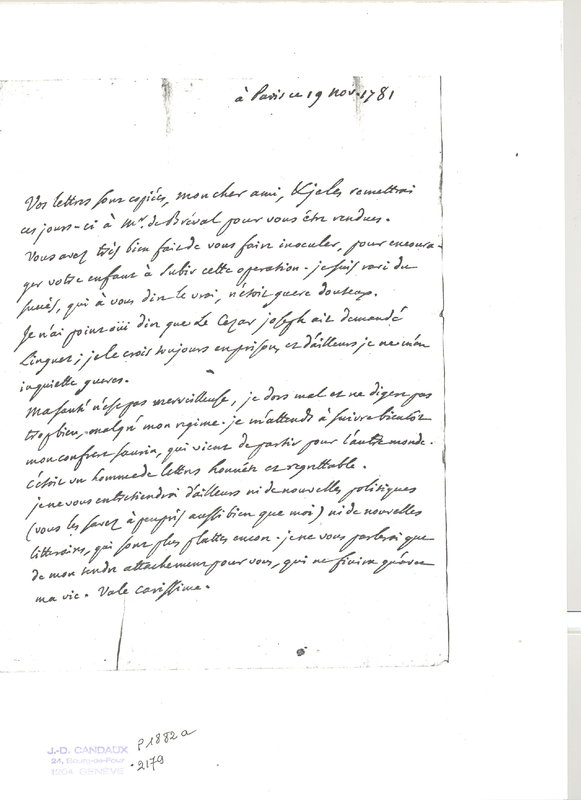 à Paris ce 19 nov. 1781
Vos lettres sont copiées, mon cher ami, & je les remettrai
ces jours-ci à Mr. de Bréval pour vous être rendues.
Vous avez très bien fait de vous faire inoculer, pour encoura-
ger votre enfant à subir cette operation. je suis ravi du
succès, qui à vous dire le vrai, n'étoit guere douteux.
Je n'ai point oüi dire que Le Cezar joseph ait demandé
Linguet; je le crois toujours en prison, et d'ailleurs je ne m'en
inquiette gueres.
Ma santé n'est pas merveilleuse, je dors mal et ne digere pas
trop bien, malgré mon regime. je m'attends à suivre bientôt
mon confrere Saurin, qui vient de partir pour l'autre monde.
C'étoit un homme de lettres honnête et regrettable.
je ne vous entretiendrai d'ailleurs ni de nouvelles politiques
(vous les savez à peu près aussi bien que moi) ni de nouvelles
litteraires, qui sont plus plattes encore. je ne vous parlerai que
de mon tendre attachement pour vous, qui ne finira qu'avec
ma vie. Vale carissime.
J.-D. CANDAUX
24, Bourg-de-Four
1204 GENÈVE
P1882a
2179